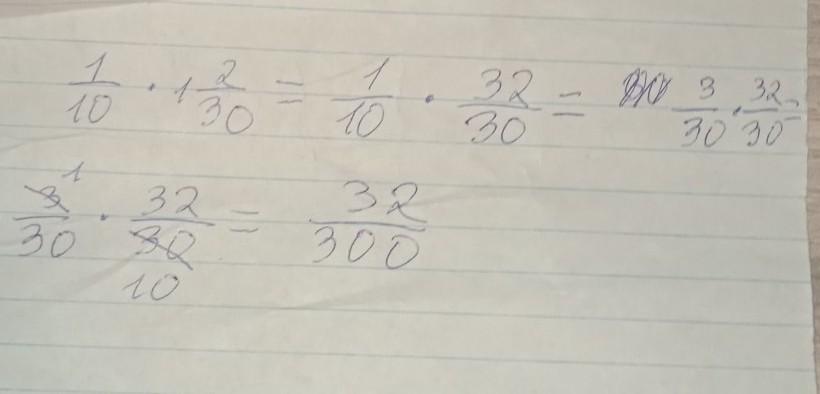 1/10 · 1 2/30 = 1/10 · 32/30 = 3/30 · 32/30 =
3/30 1 · 32/30 10 = 32/300